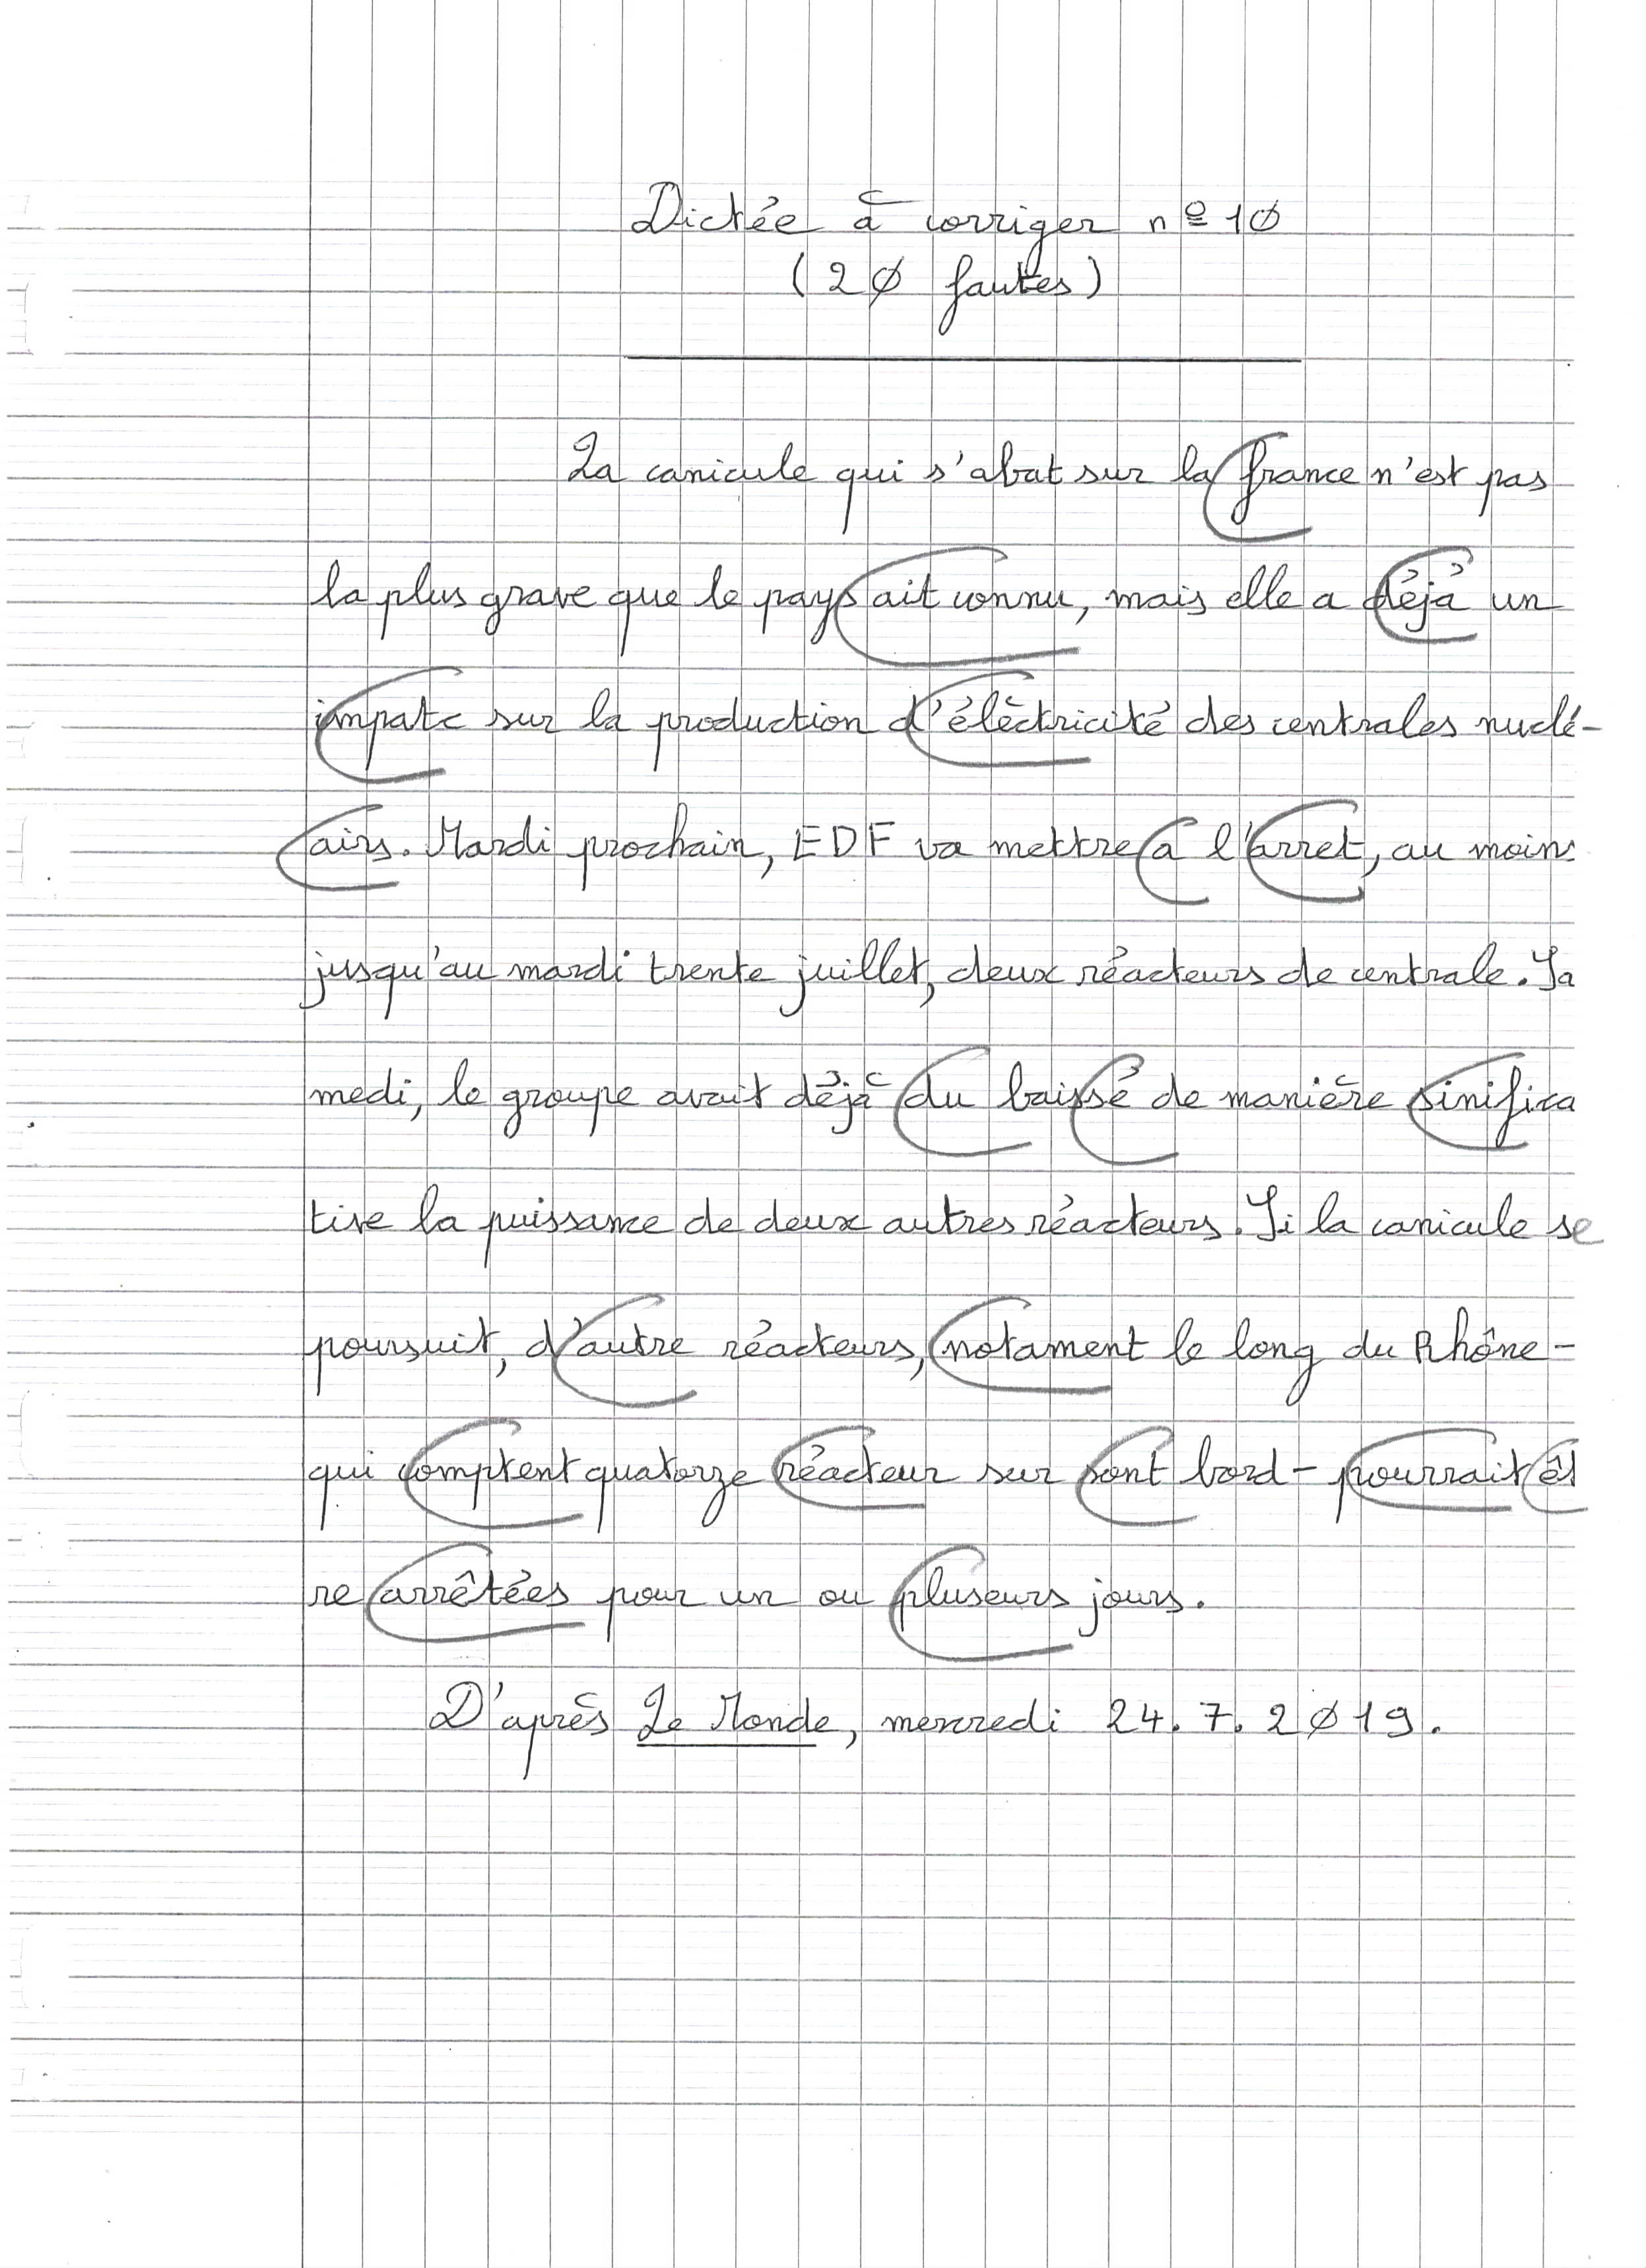 Dictée à corriger nº 10
(20 fautes)
La canicule qui s'abat sur la france n'est pas
la plus grave que le pays ait connu, mais elle a déjá un
impatc sur la production d'élèctricité des centrales nuclé-
airs. Mardi prochain, EDF va mettre a l'arret, au moins
jusqu'au mardi trente juillet, deux réacteurs de centrale. Sa
medi, le groupe avait déjà du baissé de manière sinifica
tive la puissance de deux autres réacteurs. Si la canicule se
poursuit, d'autre réacteurs, notament le long du Rhône -
qui comptent quatorze réacteur sur sont bord - pourrait êt
re arrêtées pour un ou pluseurs jours.
D'après Le Monde, mercredi 24.7.2019.